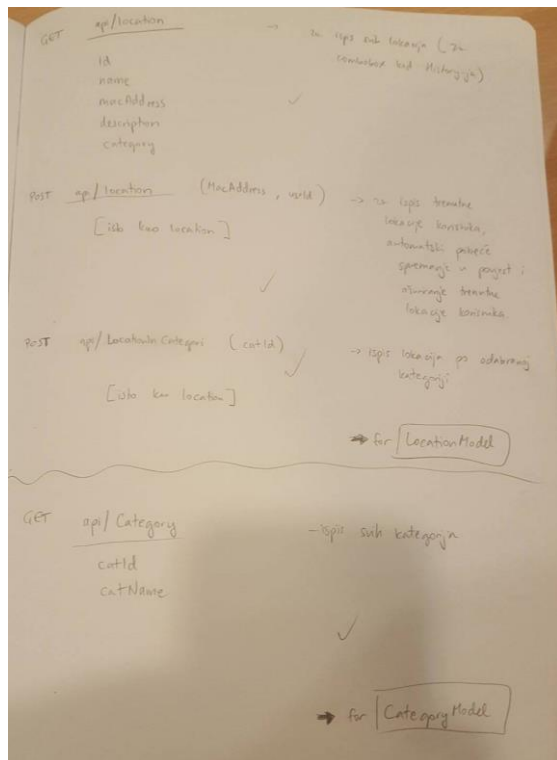 GET api/location → za ispis svih lokacija (za
combobox kod Historyja)
id
name
macAddress
description
category
POST api/location (MacAddress, usrId) → za ispis trenutne
lokacije korisnika,
[isto kao location] automatski pokreće
spremanje u povijest i
ažuriranje trenutne
lokacije korisnika.
POST api/ (catId) → ispis lokacija po odabranoj
kategoriji
[isto kao location]
→ for LocationModel
GET api/Category – ispis svih kategorija
catId
catName
→ for CategoryModel